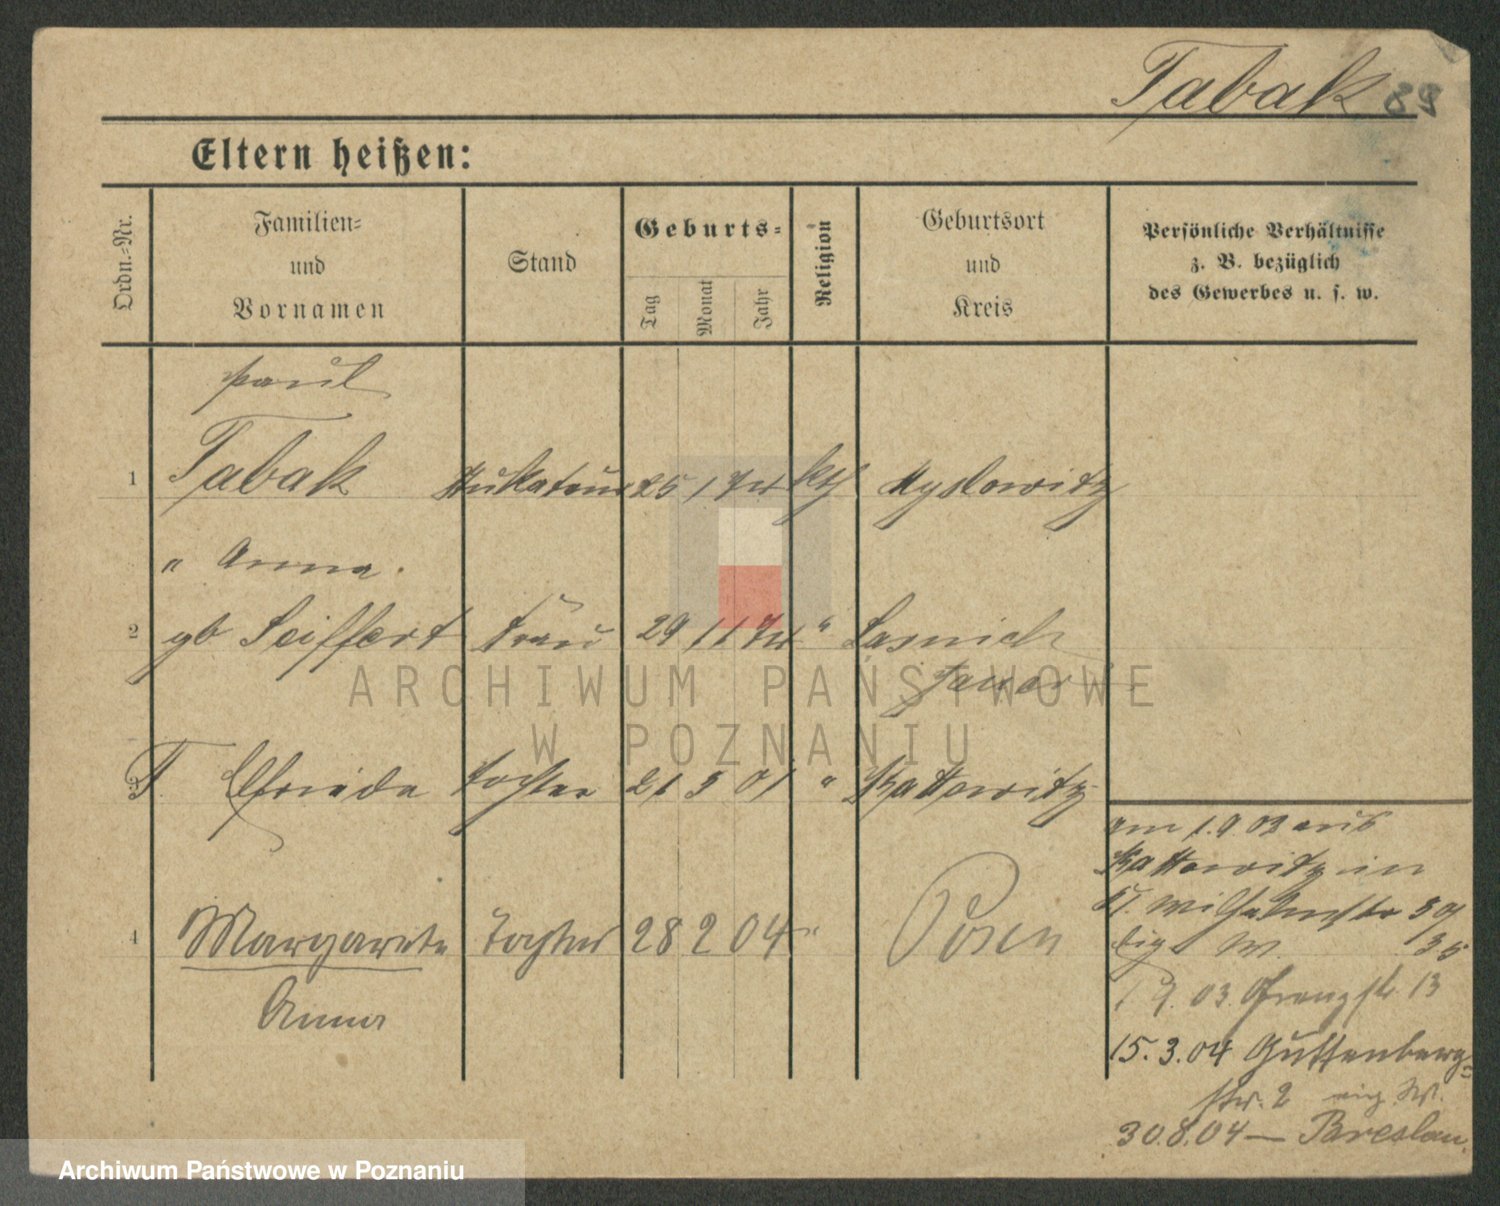 Tabak 89
Eltern heißen:
Ordn.-Nr.
Familien-
und
Vornamen
Stand
Geburts-
Tag
Monat
Jahr
Religion
Geburtsort
und
Kreis
Persönliche Verhältnisse
z. B. bezüglich
des Gewerbes u. s. w.
Paul
1 Tabak Stukateur 25 1 74 kth Myslowitz
" Anna.
2 gb Seiffert Frau 29 11 74 " Lasnich
Jauer
3 T. Elfriede Tochter 21 5 01 " Kattowitz
am 1.9.02 aus
Kattowitz in
St. Wilhelmstr
35
4 Margarete Tochter 28 2 04 " Posen
Anna
03 13
15.3.04 Guttenberg=
str. 2 eig. W.
30.8.04 — Breslau.
ARCHIWUM PAŃSTWOWE
W POZNANIU
Archiwum Państwowe w Poznaniu